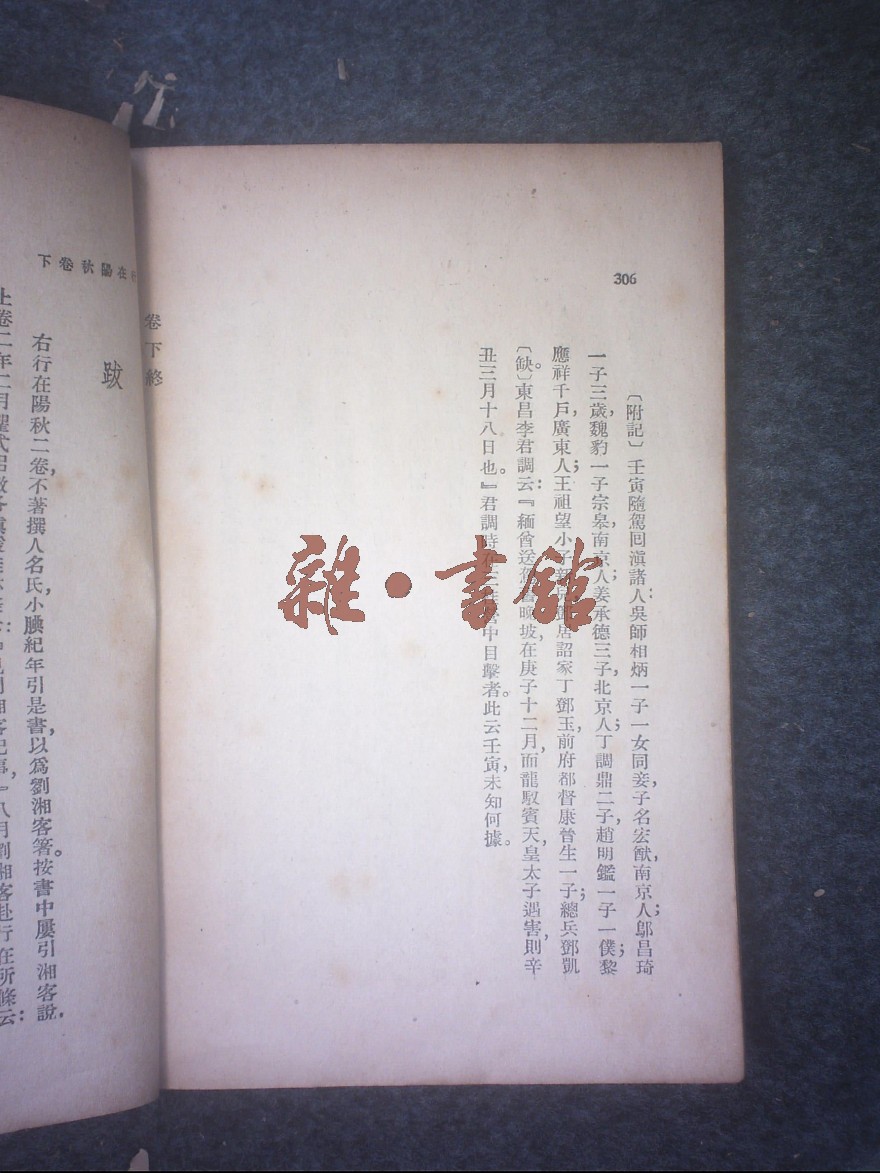 306
〔附記〕壬寅隨駕回滇諸人：吳師相炳一子一女同妾，子名宏猷，南京人；鄔昌琦
一子三歲，魏豹一子宗皋，南京人；姜承德三子，北京人；丁調鼎二子，趙明鑑一子一僕；黎
應祥千戶，廣東人；王祖望小子居詔家丁鄧玉，前府都督康晉生一子；總兵鄧凱
〔缺〕。東昌李君調云：『緬酋送晚坡，在庚子十二月，而龍馭賓天，皇太子遇害，則辛
丑三月十八日也。』君調時中目擊者。此云壬寅，未知何據。
在陽秋卷下
卷下終
跋
右行在陽秋二卷，不著撰人名氏，小腆紀年引是書，以爲劉湘客箸。按書中屢引湘客說，
上卷二年二月瞿式八月劉湘客赴行在所條云：
雜·書館